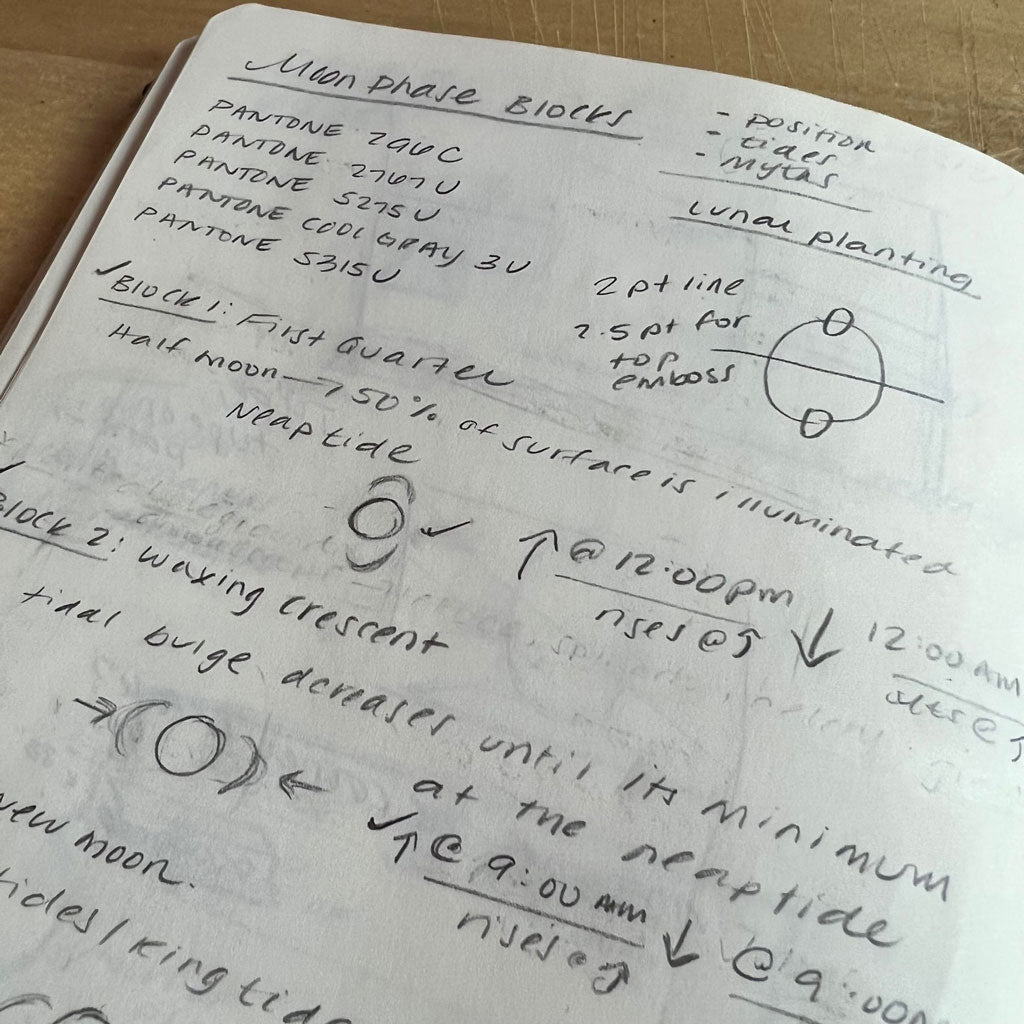 Moon phase Blocks
PANTONE 296 C
PANTONE 2767 U
PANTONE 5275 U
PANTONE COOL GRAY 3U
PANTONE 5315U
- position
- tides
- myths
Lunar planting
2 pt line
2.5 pt for
top
emboss
✓Block 1: First Quarter
Half moon → 50% of surface is illuminated
Neap tide
✓
↑ @ 12:00pm
rises @ ↑
↓ 12:00 AM
sets @ ↑
✓
Block 2: waxing crescent
tidal bulge dcreases until its minimum
at the neap tide
→ ←
✓ ↑ @ 9:00 AM
rises @ ↑
↓ @ 9:00
new moon.
tides / King tide